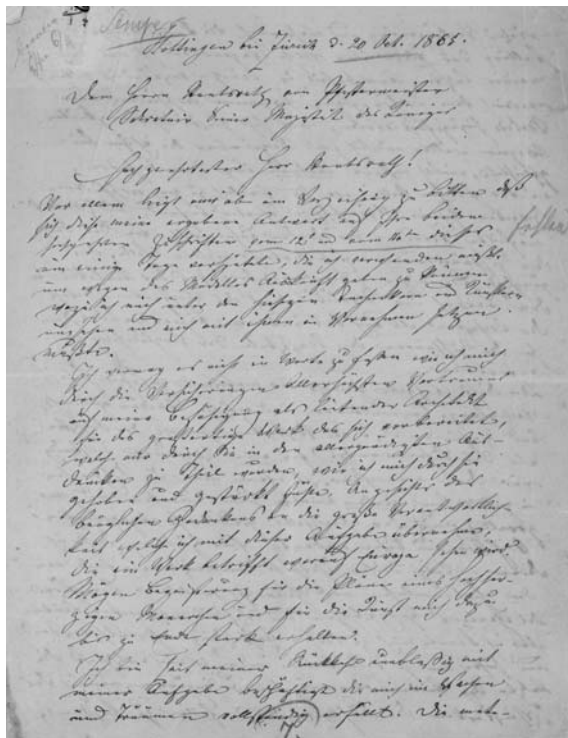 Semper
Hottingen bei Zürich d. 20 Oct. 1865.
Dem Herrn Staatsrath von Pfistermeister
Sekretair Seiner Majestät des Königes
Hochgeehrtester Herr Staatsrath!
Vor allem liegt mir ob um Verzeihung zu bitten daß
sich diese meine ergebene Antwort auf Ihre beiden
Zuschriften vom 12t und vom 14ten dieses
um einige Tage verspätete, die ich verwenden mußte
um wegen des Modelles Auskunft geben zu können
mich unter den hiesigen und Künstlern
umsehen und mich mit ihnen in Vernehmen setzen
mußte.
Ich vermag es nicht in Worte zu fassen wie ich mich
durch die Versicherungen Allerhöchsten Vertrauens
auf meine Befähigung als leitender Architekt
für das großartige Werk das sich vorbereitet,
welche mir durch Sie in den allergnädigsten Aus-
drücken zu Theil wurden, wie ich mich durch sie
gehoben und gestärkt fühle, Angesichts des
Gedankens an die große Verantwortlich-
keit welche ich mit dieser Aufgabe übernehme,
die ein Werk betrifft worauf Europa sehen wird.
Möge Begeisterung für die Pläne eines hochher-
zigen Monarchen und für die Kunst mich dazu
bis zu Ende stark erhalten.
Ich bin seit meiner Rückkehr unablässig mit
meiner Aufgabe beschäftigt die mich im Wachen
und Träumen vollständig erfüllt. Die